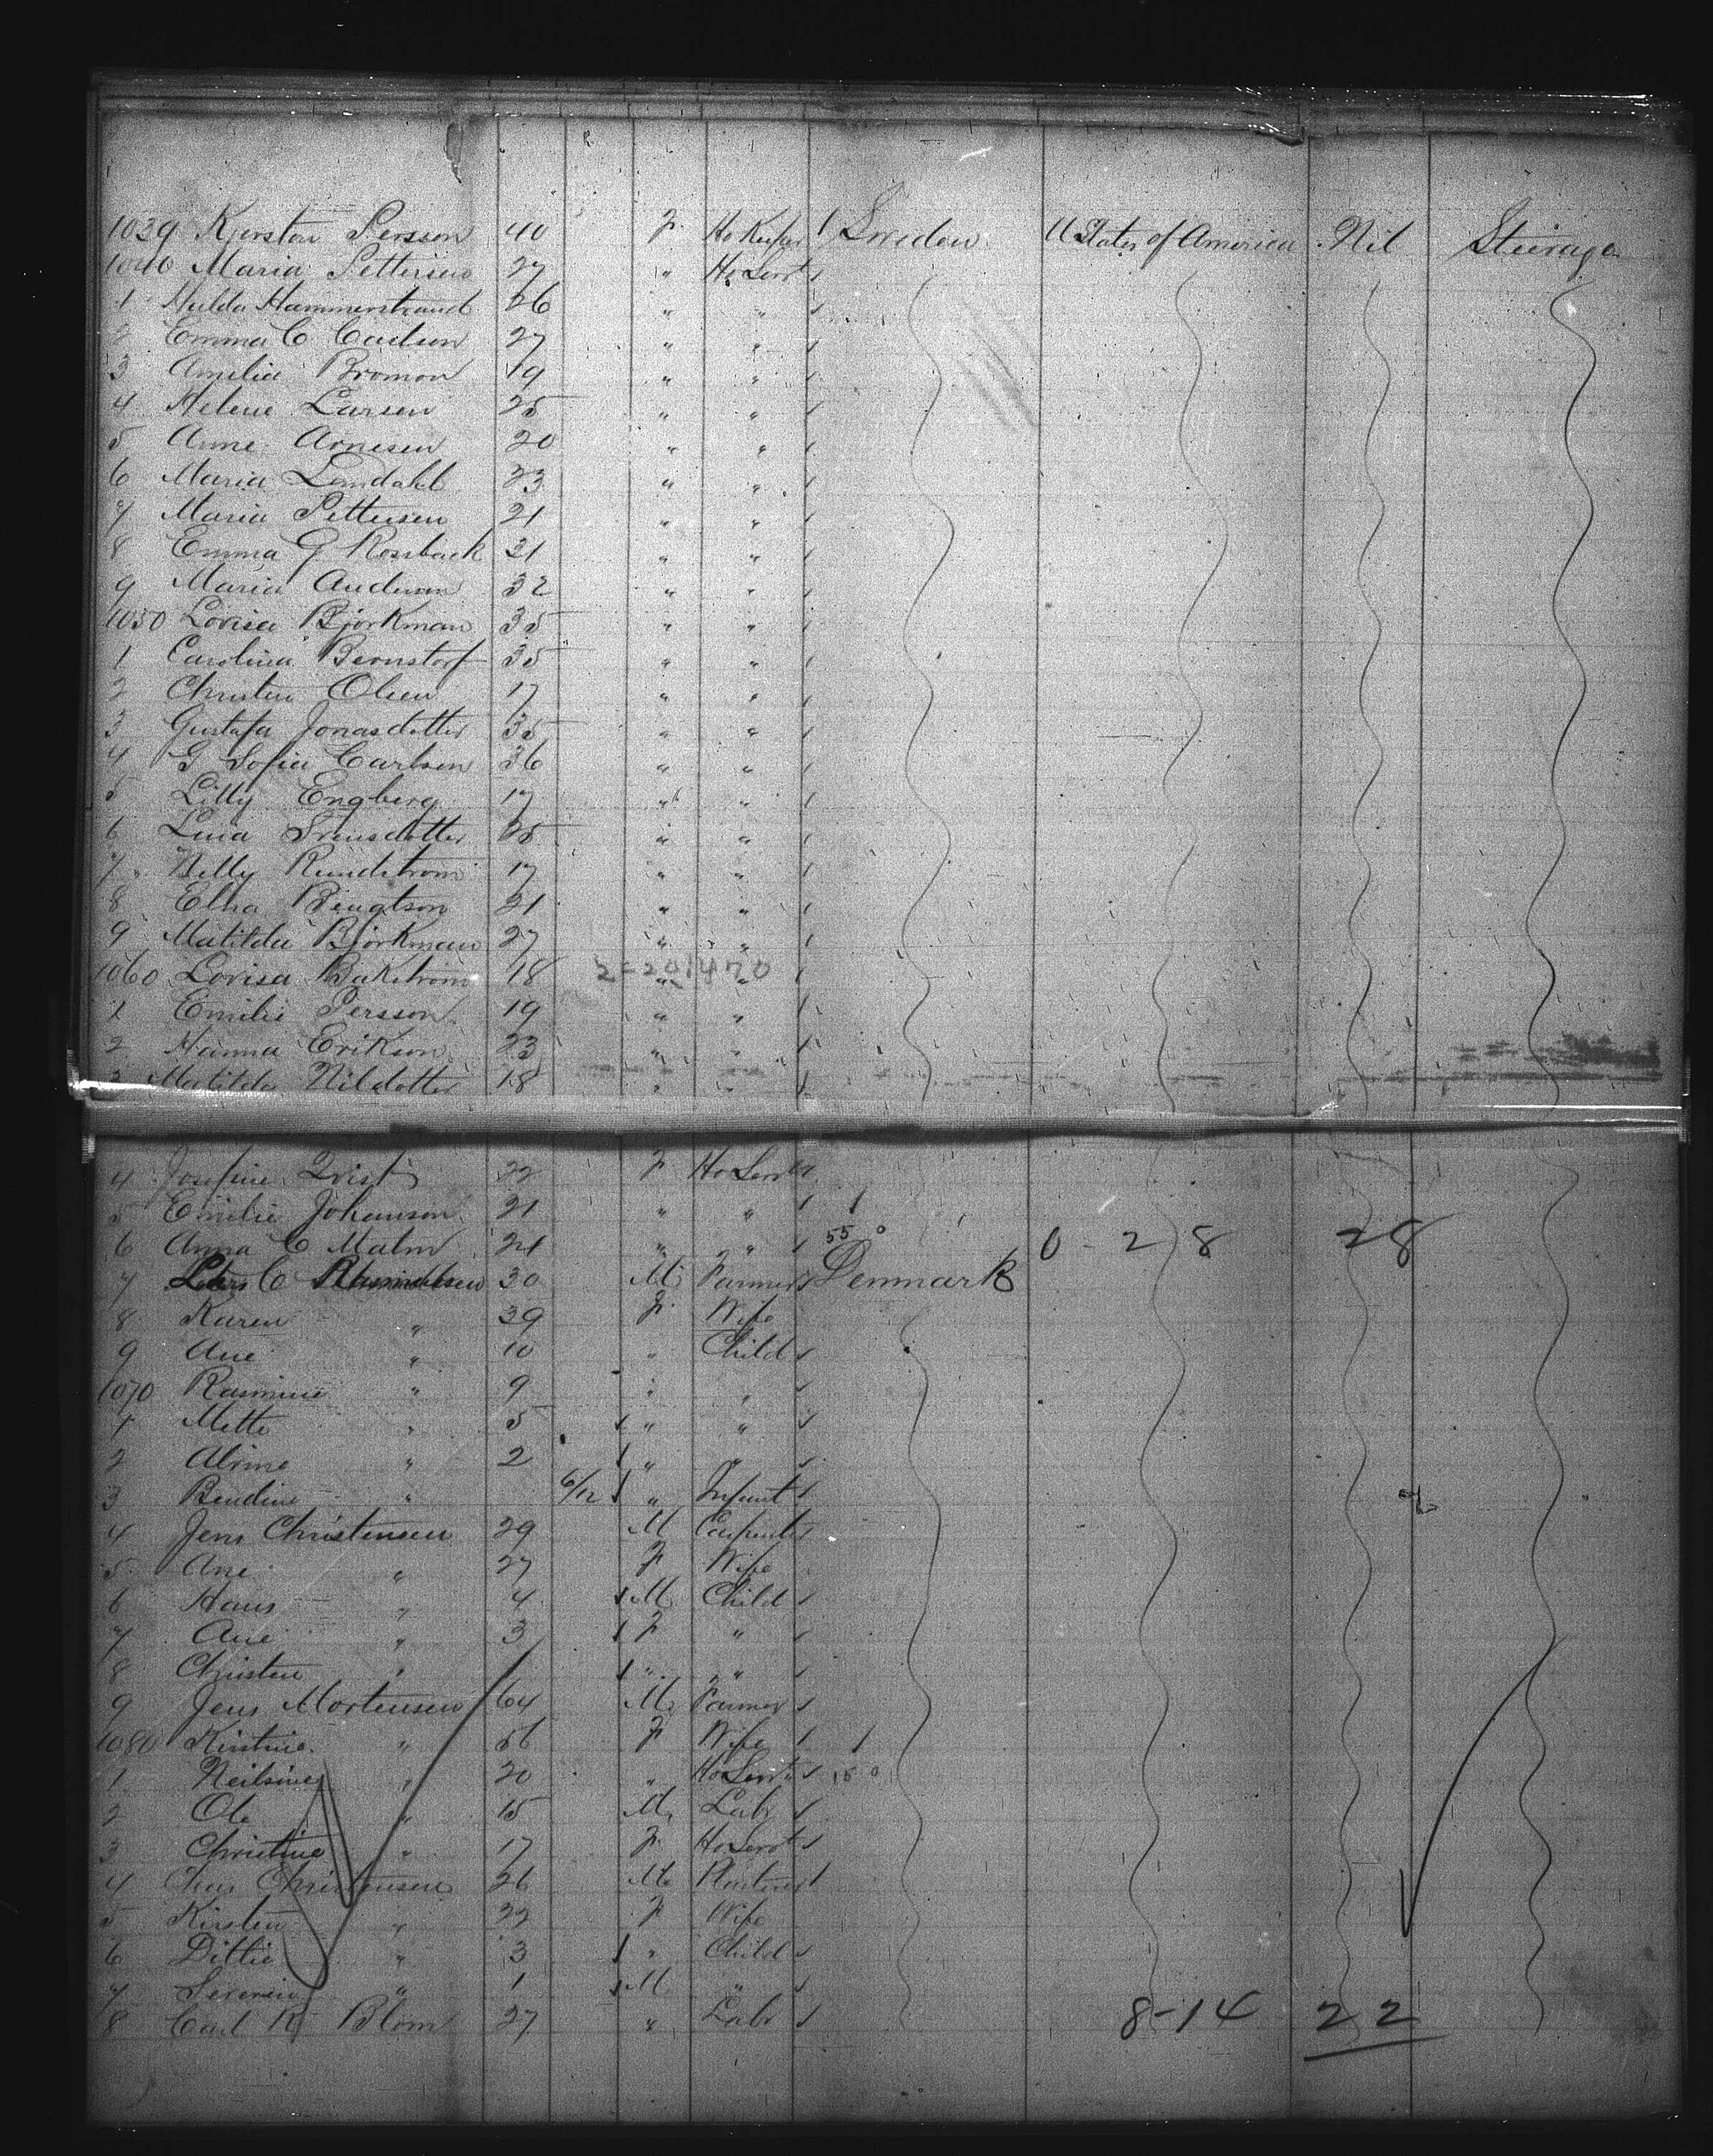 1039 Kjersten Persson 40 F. Ho Keeper 1 Sweden U States of America Nil Steerage
1040 Maria Pettersen 27 " Ho Servt
1 Hulda Hammerstrand 26 " "
2 Emma C Carlson 27 " "
3 Amelia Bromon 19 " "
4 Helene Larsen 25 " "
5 Anne Arnesen 20 " "
6 Maria Lendahl 23 " "
7 Maria Pettersen 21 " "
8 Emma G Rossback 31 " "
9 Maria Anderson 32 " "
1050 Lovisa Bjorkman 35 " "
1 Carolina Bernstorf 35 " "
2 Christin Olsen 17 " "
3 Gustafa Jonasdotter 35 " "
4 G Sofia Carlson 36 " "
5 Lilly Engberg 17 " "
6 Lina Svensdotter 25 " "
7 Nelly Rundstrom 17 " "
8 Elna Bengtson 21 " "
9 Matilda Bjorkman 27 " "
1060 Lovisa Bakstrom 18 " "
1 Emilie Persson 19 " "
2 Hanna Erikson 23 " "
3 Matilda Nilsdotter 18 " "
4 Josefine Qvist 22 F Ho Servt
5 Emilie Johanson 21 " " 1
6 Anna C Malm 24 " " 55 0 0 - 28 28
7 C 30 M Farmer Denmark
8 Karen " 39 F. Wife
9 Ane " 10 " Child
1070 Rasmine " 9 " "
1 Mette " 5 " "
2 Alvine " 2 " "
3 Bendine " 6/12 " Infant
4 Jens Christensen 29 M Carpentr
5 Ane " 27 F Wife
6 Hans " 4 M Child
7 Ane " 3 F "
8 Christen " 1 " "
9 Jens Mortensen 64 M Farmer
1080 Kirstine " 56 F Wife 1
1 Neilsine " 20 " Ho Servt
2 Ole " 15 M Labr
3 Christine " 17 F Ho Servt
4 Christensen 26 M
5 Kirsten " 22 F Wife
6 Dittie " 3 " Child
7 Severin " 1 M "
8 Carl R Blom 27 " Labr 8-14 22